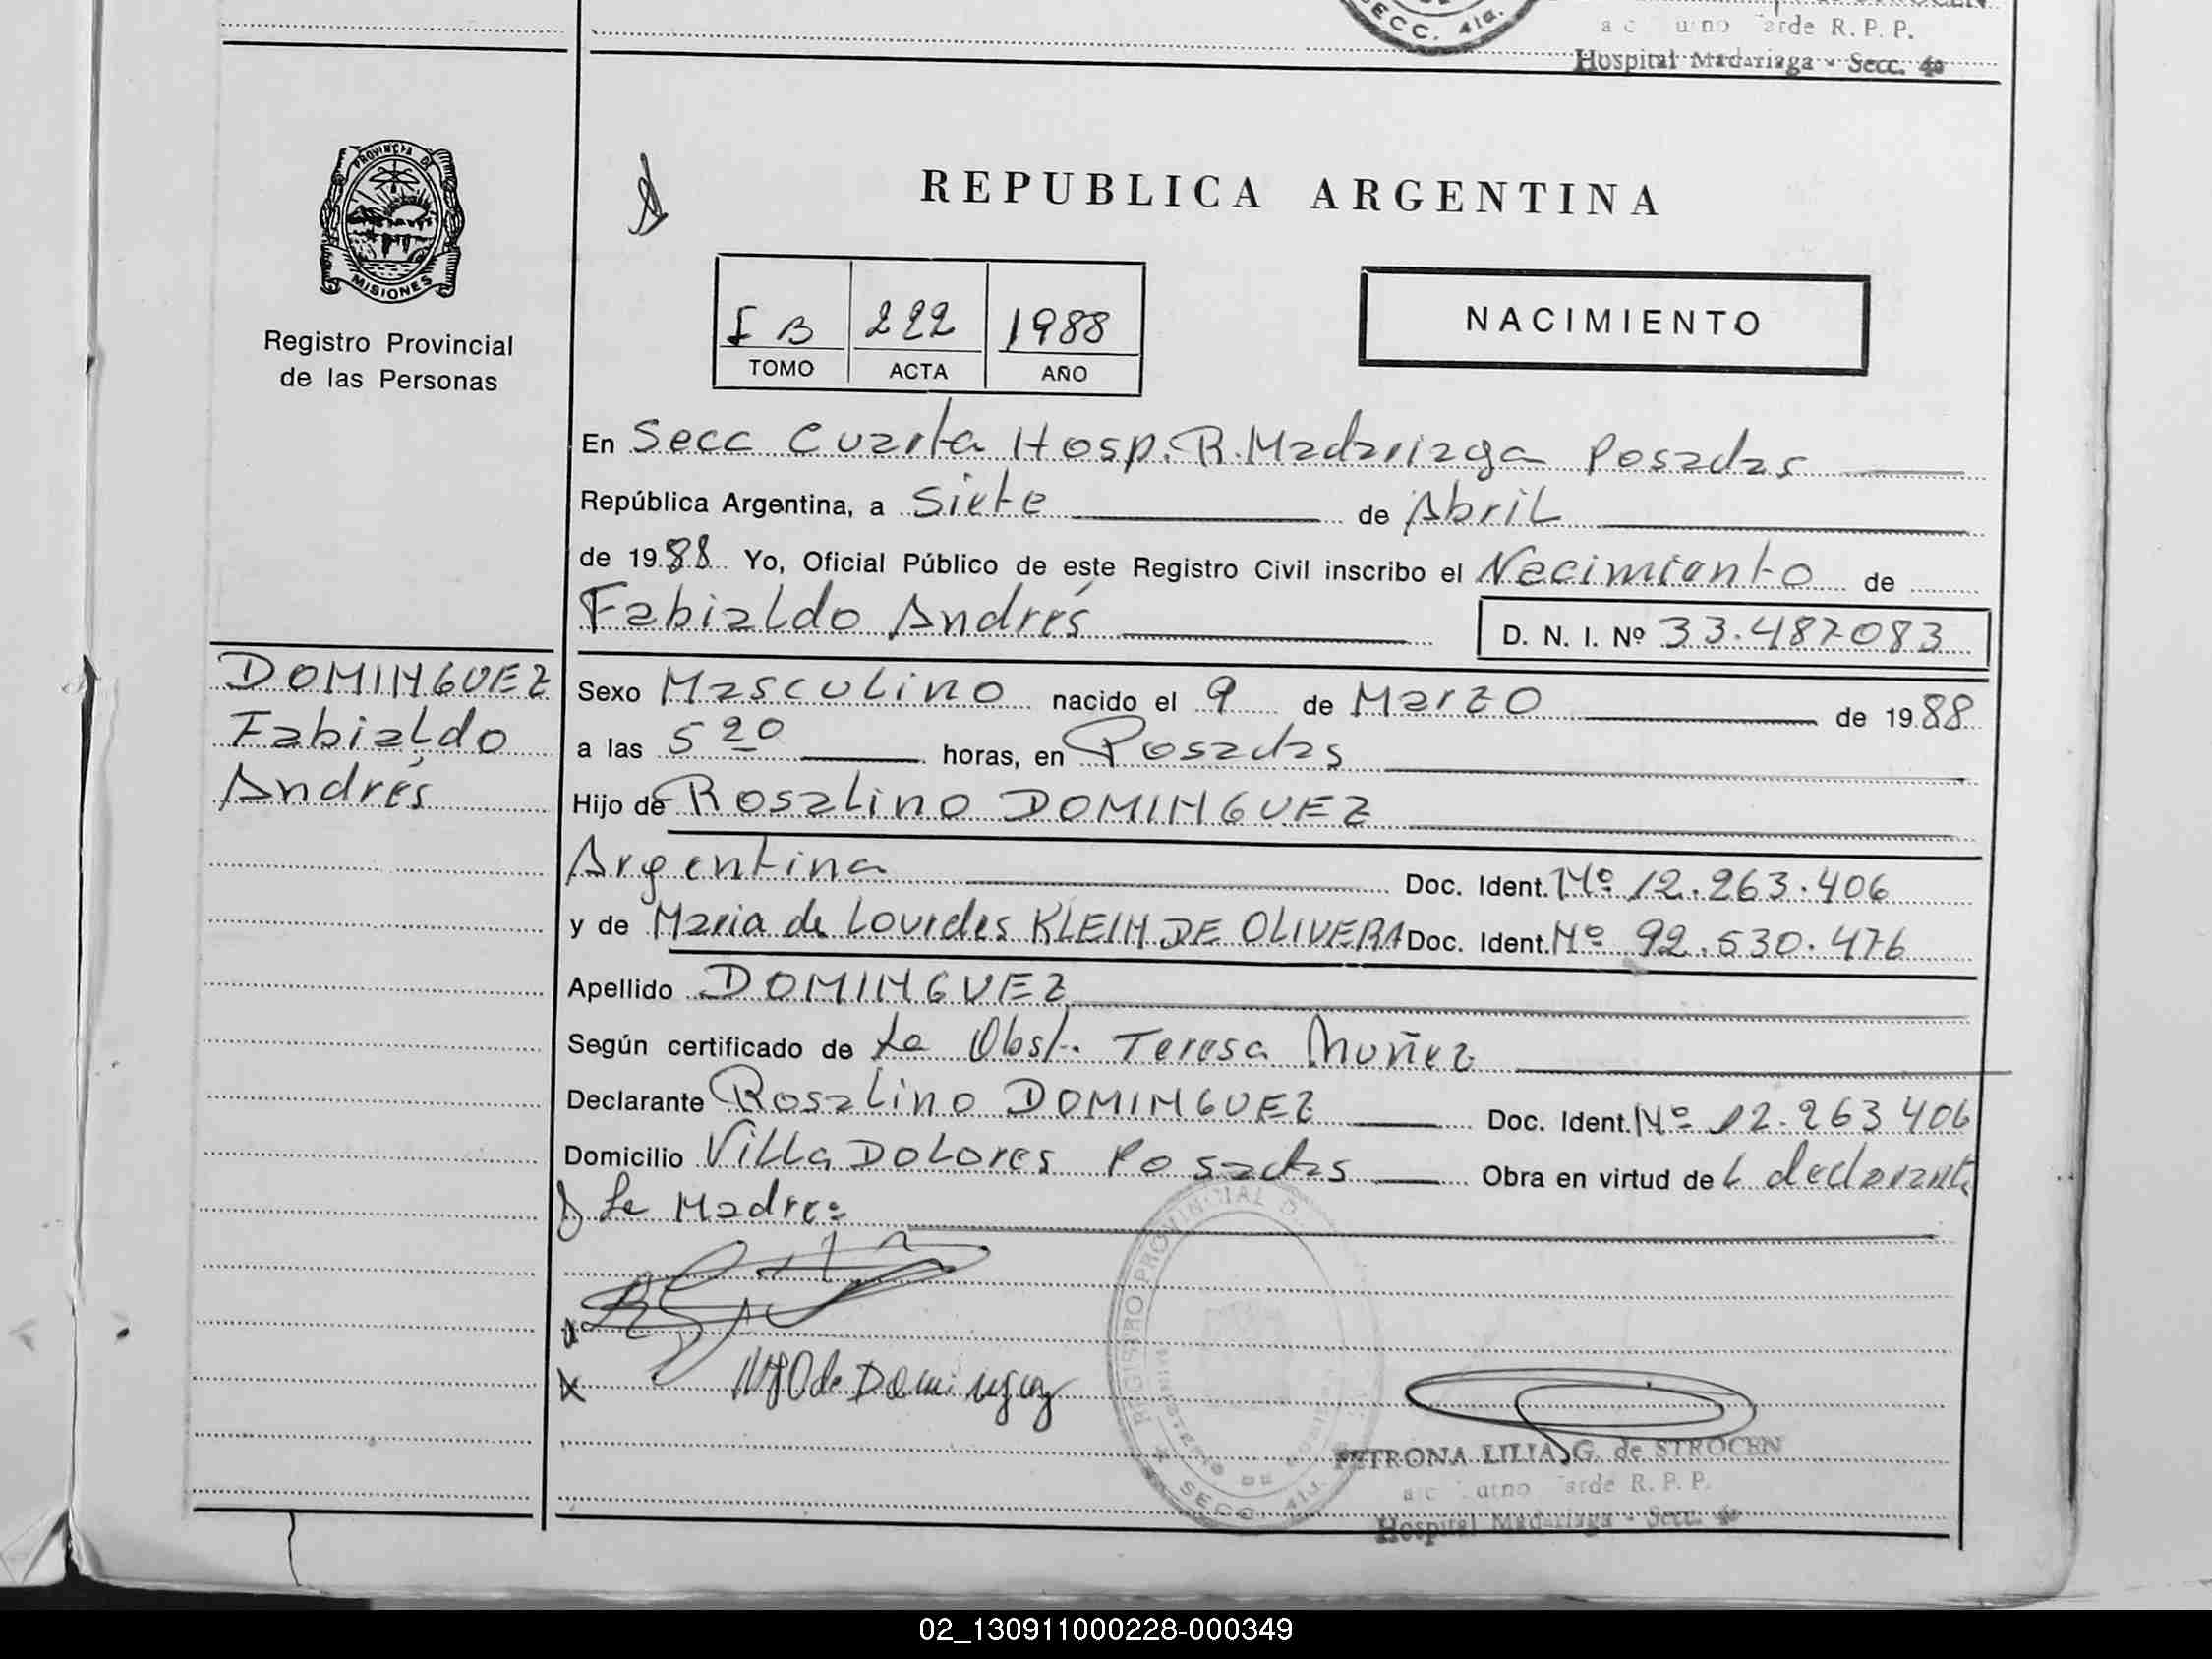 SECC. 4ta.
arde R. P. P.
Hospital Madariaga - Secc. 4a
PROVINCIA DE
MISIONES
Registro Provincial
de las Personas
REPUBLICA ARGENTINA
I B 222 1988
TOMO ACTA AÑO
NACIMIENTO
En Secc Cuarta Hosp. R. Madariaga Posadas
República Argentina, a Siete de Abril
de 1988 Yo, Oficial Público de este Registro Civil inscribo el Nacimiento de
Fabialdo Andrés D. N. I. Nº 33.487.083
DOMINGUEZ
Fabialdo
Andrés
Sexo Masculino nacido el 9 de Marzo de 1988
a las 5 20 horas, en Posadas
Hijo de Rosalino DOMINGUEZ
Argentina Doc. Ident. Nº 12.263.406
y de Maria de Lourdes KLEIN DE OLIVERA Doc. Ident. Nº 92.530.476
Apellido DOMINGUEZ
Según certificado de La Obst. Teresa Muñez
Declarante Rosalino DOMINGUEZ Doc. Ident. Nº 12.263 406
Domicilio Villa Dolores Posadas Obra en virtud de L declarante
y La Madre=
REGISTRO PROVINCIAL D
SECC. 4ta.
de Dominguez
PETRONA LILIA G. de STROCEN
arde R. P. P.
Hospital Madariaga - Secc. 4a
02_130911000228-000349